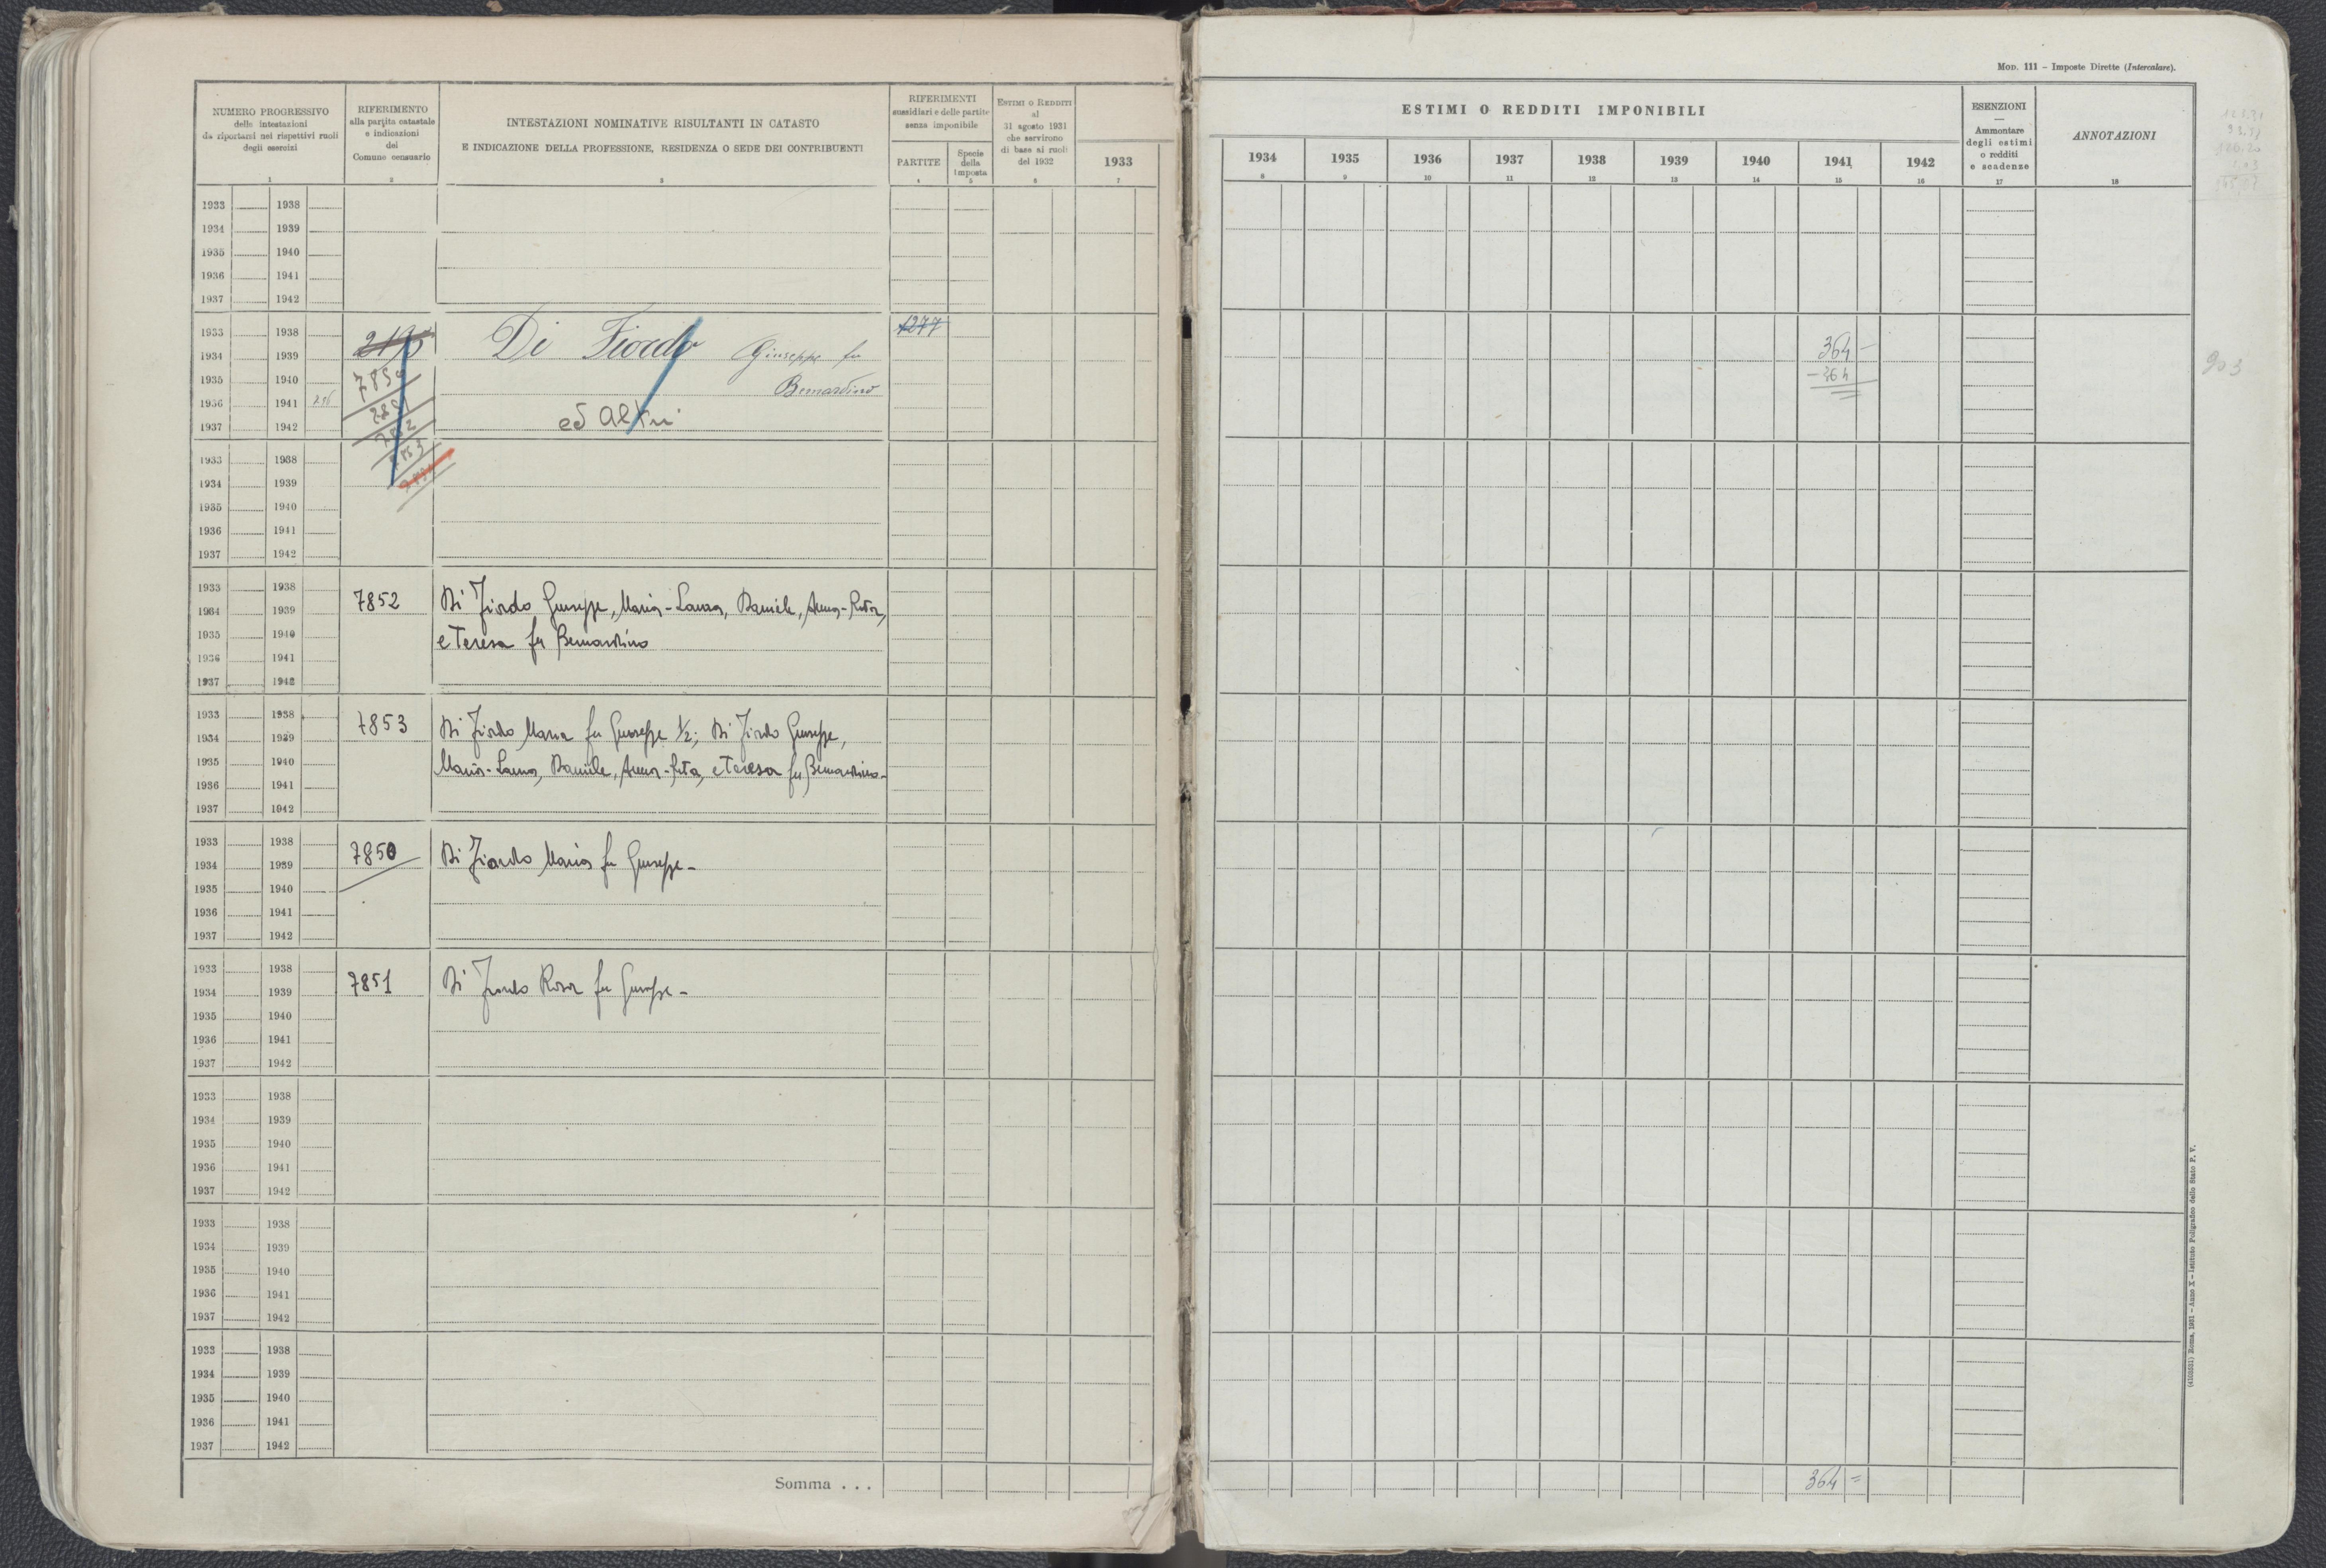 MOD. 111 – Imposte Dirette (Intercalare).
NUMERO PROGRESSIVO
delle intestazioni
da riportarsi nei rispettivi ruoli
degli esercizi
1
RIFERIMENTO
alla partita catastale
e indicazioni
del
Comune censuario
2
INTESTAZIONI NOMINATIVE RISULTANTI IN CATASTO
E INDICAZIONE DELLA PROFESSIONE, RESIDENZA O SEDE DEI CONTRIBUENTI
3
RIFERIMENTI
sussidiari e delle partite
senza imponibile
PARTITE
4
Specie
della
imposta
5
ESTIMI O REDDITI
al
31 agosto 1931
che servirono
di base ai ruoli
del 1932
6
1933
7
ESTIMI O REDDITI IMPONIBILI
1934 1935 1936 1937 1938 1939 1940 1941 1942
8 9 10 11 12 13 14 15 16
ESENZIONI
—
Ammontare
degli estimi
o redditi
e scadenze
17
ANNOTAZIONI
18
1933 1938
1934 1939
1935 1940
1936 1941
1937 1942
1933 1938 1277
1934 1939 Di Fiordo Giuseppe fu 364 –
1935 1940 7850 Bernardino – 364
1936 1941 7851
1937 1942 7852 ed altri
903
1933 1938 7853
1934 1939
1935 1940
1936 1941
1937 1942
1933 1938
1934 1939 7852 Di Fiordo Giuseppe, Maria-Laura, Daniele, Anna-Rita,
1935 1940 e Teresa fu Bernardino
1936 1941
1937 1942
1933 1938
1934 1939 7853 Di Fiordo Maria fu Giuseppe ½; Di Fiordo Giuseppe,
1935 1940 Maria-Laura, Daniele, Anna-Rita, e Teresa fu Bernardino –
1936 1941
1937 1942
1933 1938
1934 1939 7850 Di Fiordo Maria fu Giuseppe –
1935 1940
1936 1941
1937 1942
1933 1938
1934 1939 7851 Di Fiordo Rosa fu Giuseppe –
1935 1940
1936 1941
1937 1942
1933 1938
1934 1939
1935 1940
1936 1941
1937 1942
1933 1938
1934 1939
1935 1940
1936 1941
1937 1942
1933 1938
1934 1939
1935 1940
1936 1941
1937 1942
Somma . . . 364 =
(4103531) Roma, 1931 – Anno X – Istituto Poligrafico dello Stato P. V.